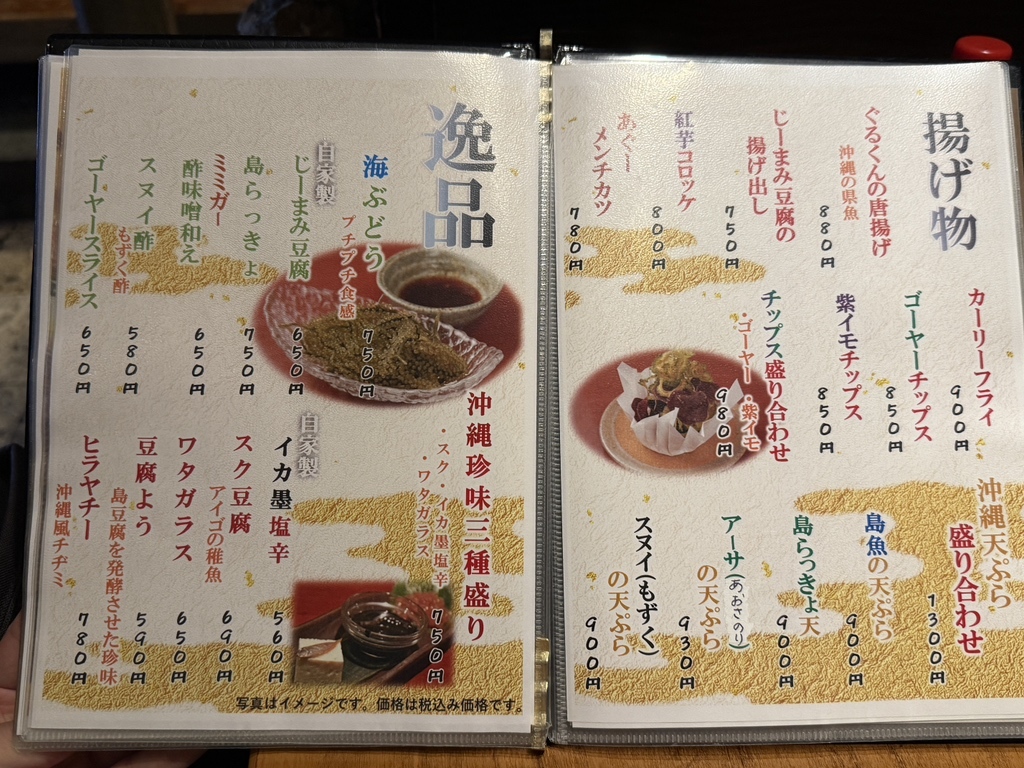 揚げ物
ぐるくんの唐揚げ
沖縄の県魚
880円
じーまみ豆腐の
揚げ出し
750円
紅芋コロッケ
800円
あぐー
メンチカツ
780円
カーリーフライ
900円
ゴーヤーチップス
850円
紫イモチップス
850円
チップス盛り合わせ
・ゴーヤー・紫イモ
980円
沖縄天ぷら
盛り合わせ
1300円
島魚の天ぷら
900円
島らっきょ天
900円
アーサ(あおさのり)
の天ぷら
930円
スヌイ(もずく)
の天ぷら
900円
逸品
海ぶどう
プチプチ食感
750円
自家製
じーまみ豆腐
650円
島らっきょ
750円
ミミガー
酢味噌和え
650円
スヌイ酢
もずく酢
580円
ゴーヤースライス
650円
沖縄珍味三種盛り
・スク・イカ墨塩辛
・ワタガラス
750円
自家製
イカ墨塩辛
560円
スク豆腐
アイゴの稚魚
690円
ワタガラス
650円
豆腐よう
島豆腐を発酵させた珍味
590円
ヒラヤチー
沖縄風チヂミ
780円
写真はイメージです。価格は税込み価格です。